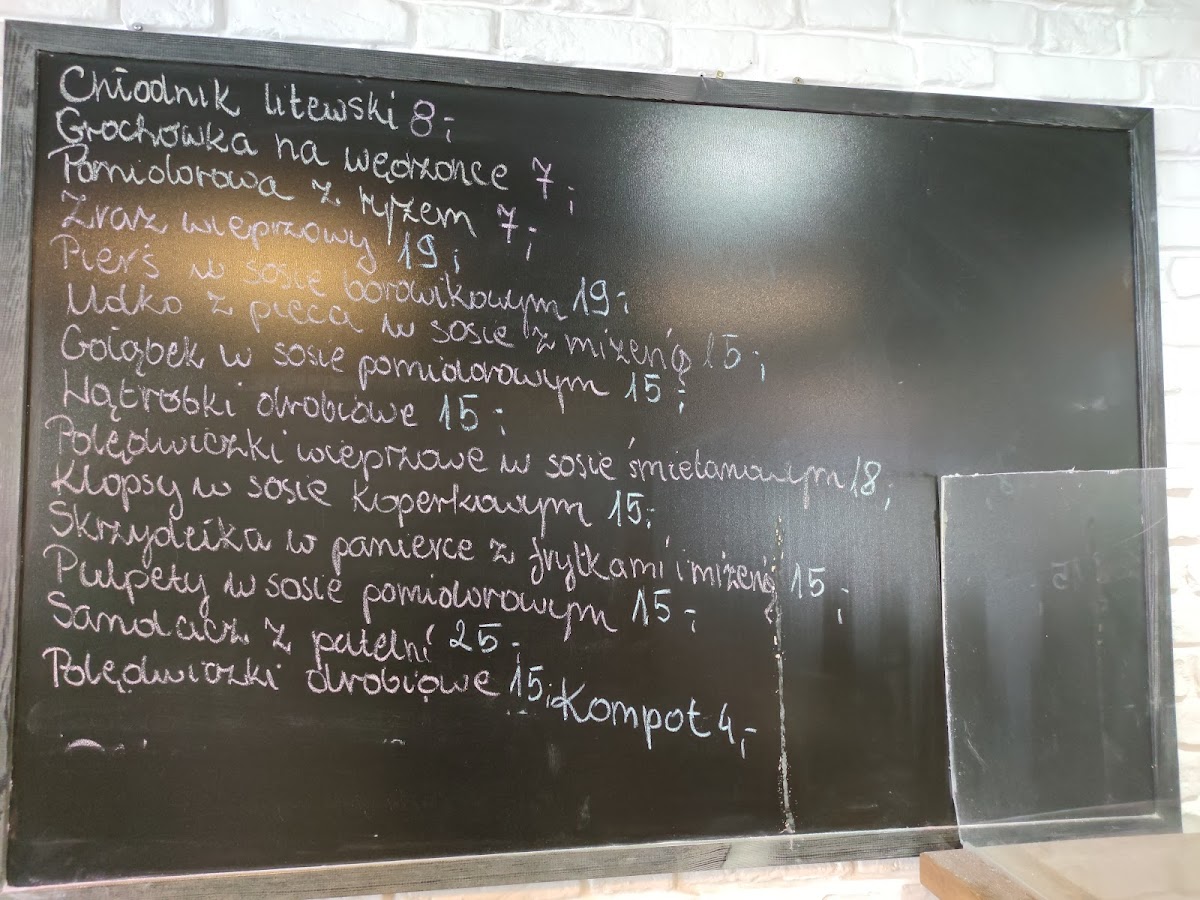 Chłodnik litewski 8,-
Grochówka na wędzonce 7,-
Pomidorowa z ryżem 7,-
Zraz wieprzowy 19,-
Pierś w sosie borowikowym 19,-
Udko z pieca w sosie z mizerią 15,-
Gołąbek w sosie pomidorowym 15,-
Wątróbki drobiowe 15,-
Polędwiczki wieprzowe w sosie śmietanowym 18,-
Klopsy w sosie koperkowym 15,-
Skrzydełka w panierce z frytkami i mizerią 15,-
Pulpety w sosie pomidorowym 15,-
Sandacz z patelni 25,-
Polędwiczki drobiowe 15,- Kompot 4,-